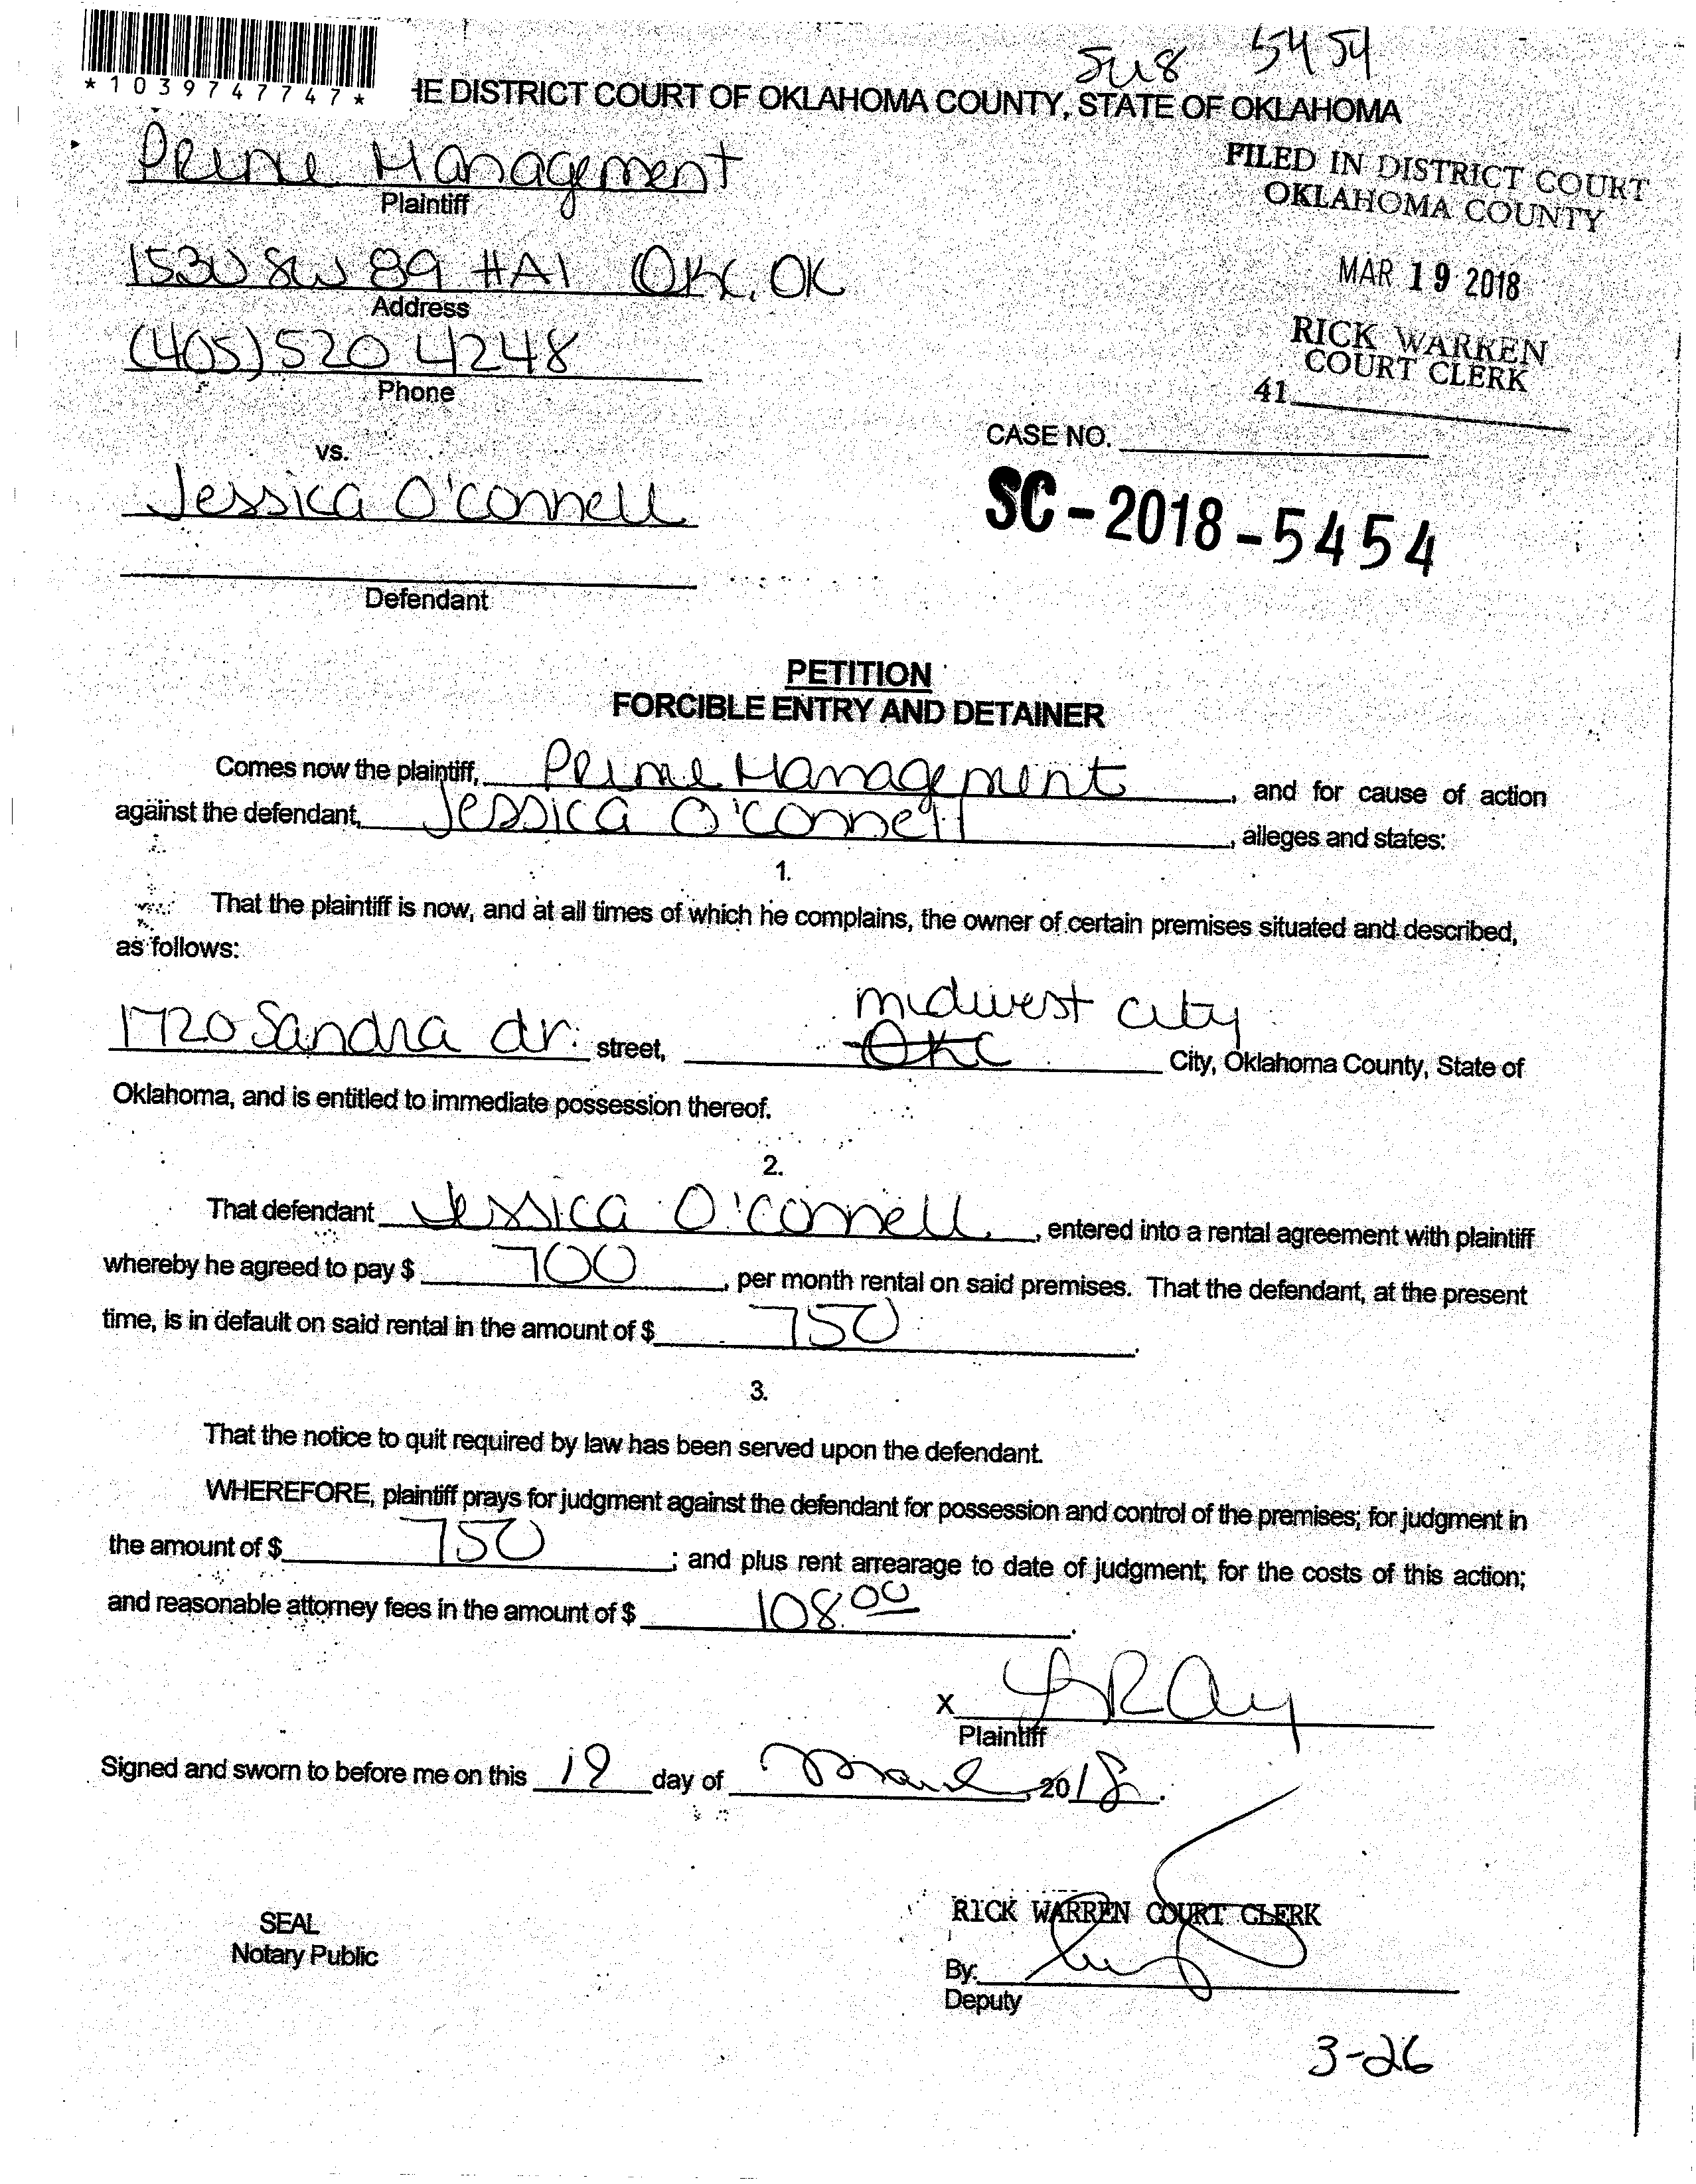 5454
*1039747747*
HE DISTRICT COURT OF OKLAHOMA COUNTY, STATE OF OKLAHOMA
Prime Management
Plaintiff
FILED IN DISTRICT COURT
OKLAHOMA COUNTY
1530 SW 89 #A1 OKC, OK
Address
MAR 19 2018
(405) 520 4248
Phone
RICK WARREN
COURT CLERK
41
CASE NO.
vs.
Jessica O'connell
SC-2018-5454
Defendant
PETITION
FORCIBLE ENTRY AND DETAINER
Comes now the plaintiff, Prime Management, and for cause of action
against the defendant, Jessica O'connell, alleges and states:
1.
That the plaintiff is now, and at all times of which he complains, the owner of certain premises situated and described,
as follows:
midwest city
1720 Sandra dr. street, OKC City, Oklahoma County, State of
Oklahoma, and is entitled to immediate possession thereof.
2.
That defendant Jessica O'connell, entered into a rental agreement with plaintiff
whereby he agreed to pay $ 700, per month rental on said premises. That the defendant, at the present
time, is in default on said rental in the amount of $ 750.
3.
That the notice to quit required by law has been served upon the defendant.
WHEREFORE, plaintiff prays for judgment against the defendant for possession and control of the premises; for judgment in
the amount of $ 750; and plus rent arrearage to date of judgment; for the costs of this action;
and reasonable attorney fees in the amount of $ 108.00.
X
Plaintiff
Signed and sworn to before me on this 19 day of March, 2018.
RICK WARREN COURT CLERK
SEAL
Notary Public
By:
Deputy
3-26